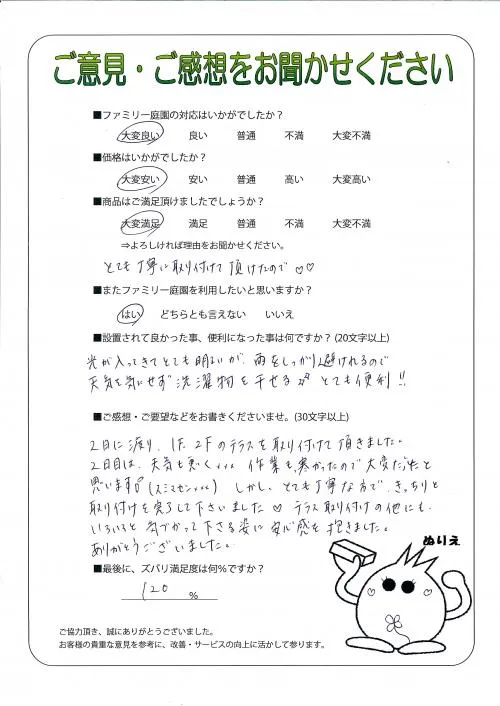 ご意見・ご感想をお聞かせください
■ファミリー庭園の対応はいかがでしたか？
大変良い　良い　普通　不満　大変不満
■価格はいかがでしたか？
大変安い　安い　普通　高い　大変高い
■商品はご満足頂けましたでしょうか？
大変満足　満足　普通　不満　大変不満
⇒よろしければ理由をお聞かせください。
とても丁寧に取り付けて頂けたので♡♡
■またファミリー庭園を利用したいと思いますか？
はい　どちらとも言えない　いいえ
■設置されて良かった事、便利になった事は何ですか？(20文字以上)
光が入ってきてとても明るいが、雨をしっかり避けれるので
天気を気にせず洗濯物を干せる とても便利!!
■ご感想・ご要望などをお書きくださいませ。(30文字以上)
2日に渡り、1F、2Fのテラスを取り付けて頂きました。
2日目は、天気も悪く… 作業も寒かったので大変だったと
思います (スミマセン…) しかし、とても丁寧な方で、きっちりと
取り付けを完了して下さいました♡ テラス取り付けの他にも、
いろいろと気づかって下さる姿に安心感を抱きました。
ありがとうございました。
■最後に、ズバリ満足度は何%ですか？
120 %
ぬりえ
ご協力頂き、誠にありがとうございました。
お客様の貴重な意見を参考に、改善・サービスの向上に活かして参ります。